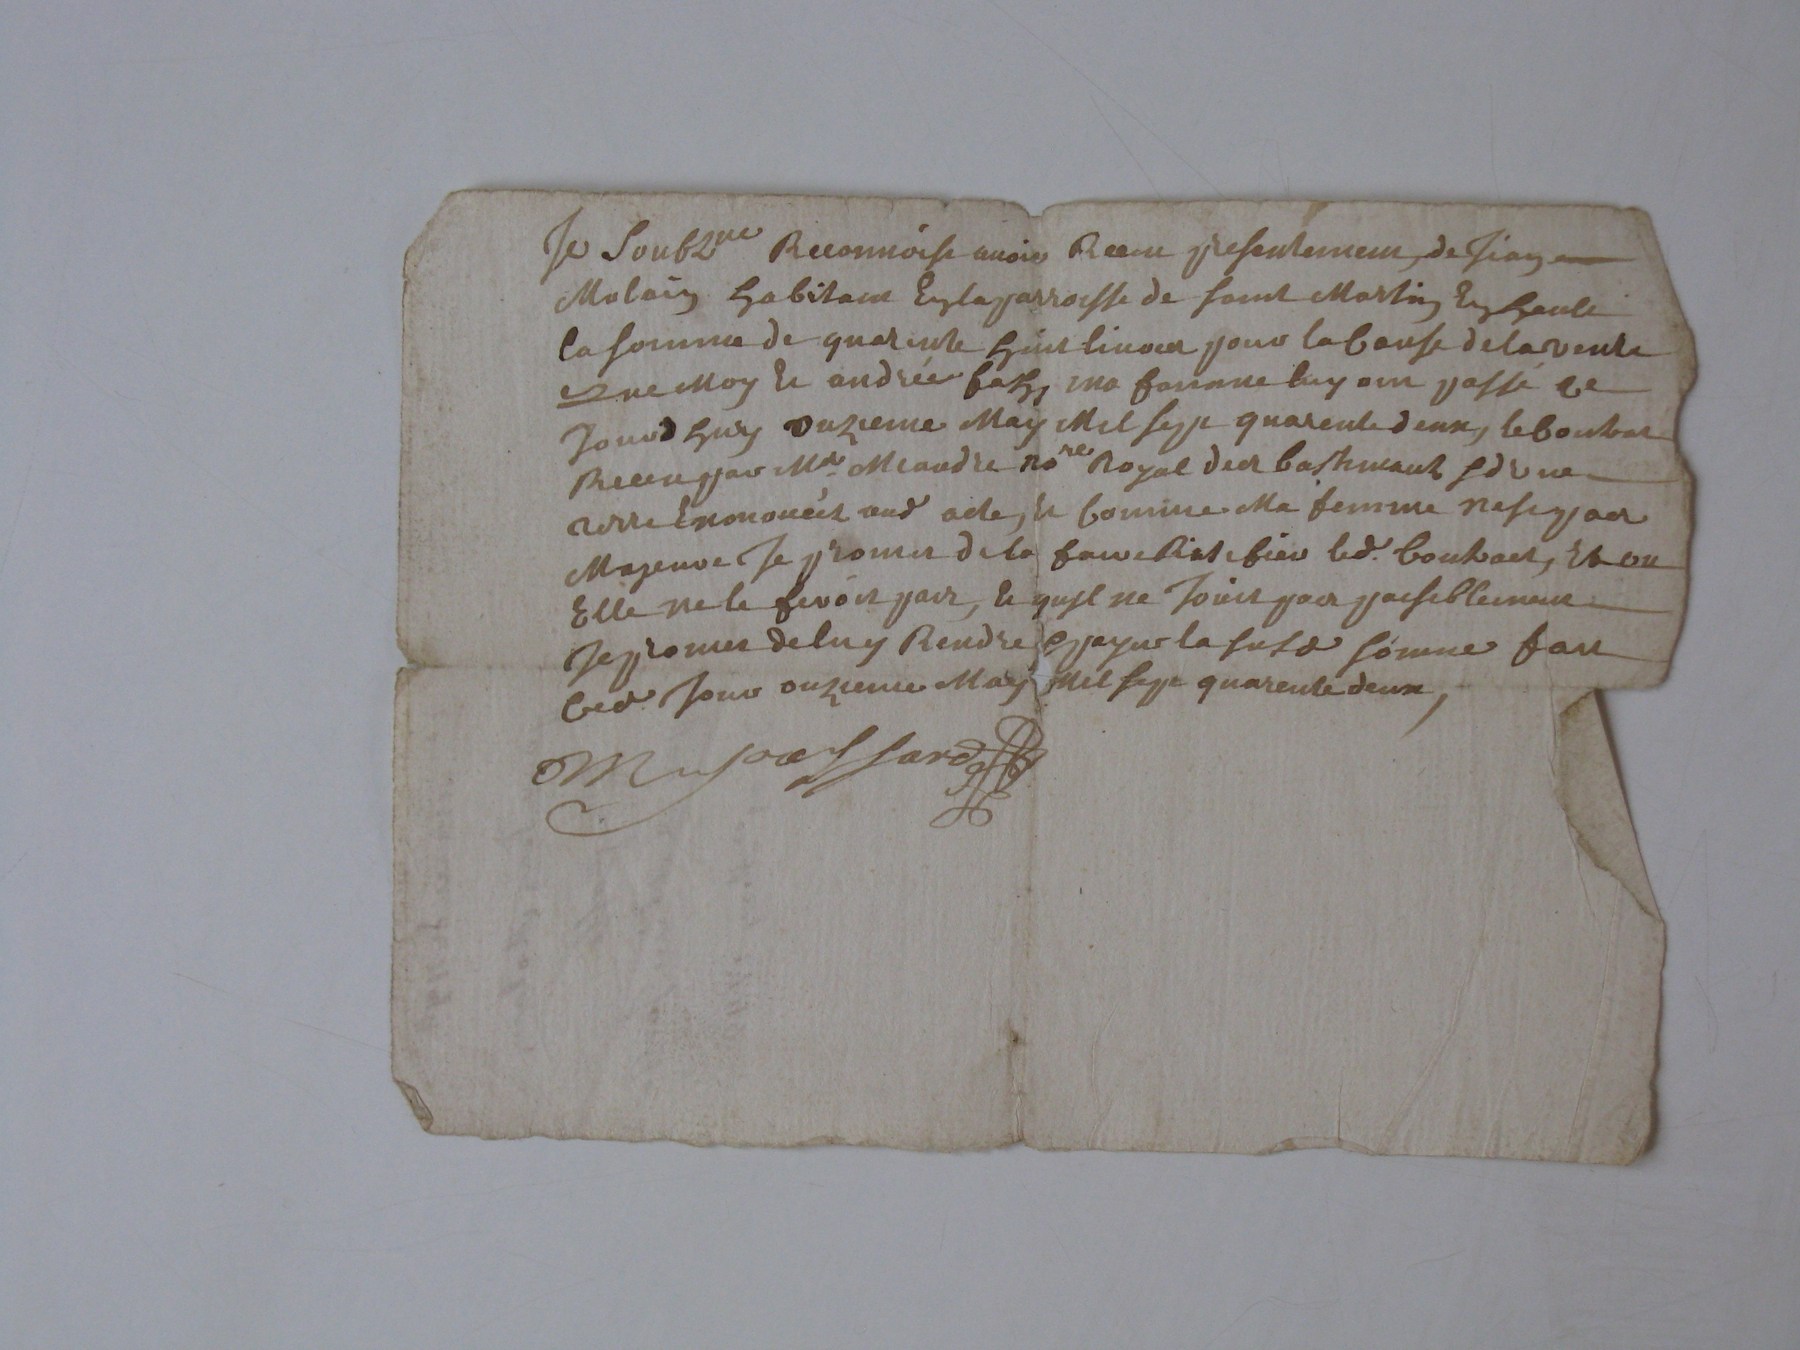 Je Soubz.ne Reconnoise auoir Receu presentement, de Jian
Molain habitant En la parroisse de saint Martin En haute
la somme de quarente huit liuoes pour la Cause de la vente
que Moy Et andrée ma famme luy ont passé ce
Jourd huy onzieme May Mil sept quarente deux, le Contrat
Receu par Me Meandre no.re Royal des d vne
terre Ennoncéz aud acte, Et Comme Ma femme nest pas
Majeure Je promet de la faire Ratefier led. Contract, Et ou
Elle ne le feroit pas, Et quil ne Jouit pas paisiblement
Je promet de luy Rendre Et payer la susd somme fait
Ced. Jour onzieme May Mil sept quarente deux,